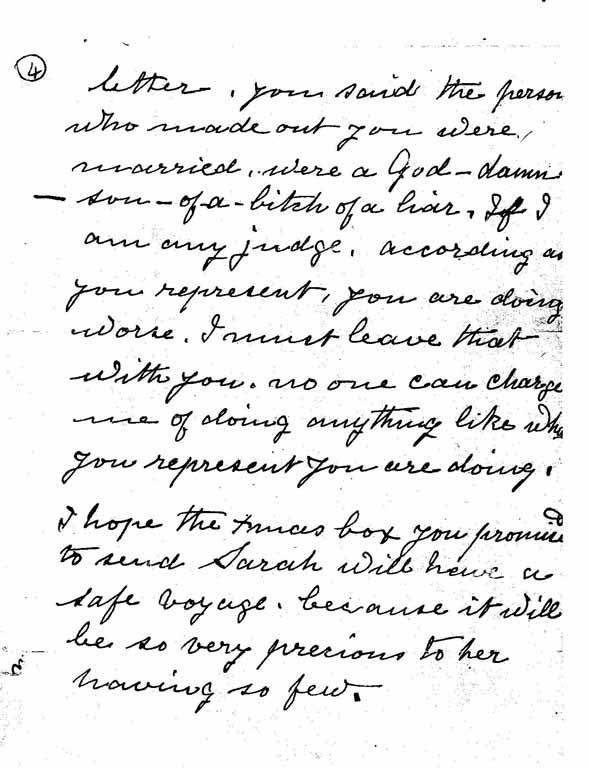 4
letter, you said the person
who made out you were,
married, were a God-damn
- son-of-a-bitch of a liar. If I
am any judge, according as
you represent, you are doing
worse. I must leave that
with you. no one can charge
me of doing anything like wha
you represent you are doing.
I hope the Xmas box you promised
to send Sarah will have a
safe voyage. because it will
be so very precious to her
having so few.